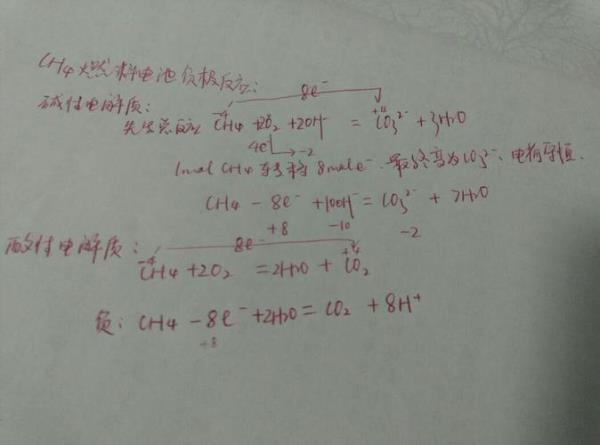 CH4燃料电池负极反应:
碱性电解质: 8e⁻
先写总反应 CH4 +2O2 +2OH⁻ = CO3²⁻ + 3H2O
-4 +4
4e⁻ → -2
1mol CH4 转移8mole⁻. 最终变为CO3²⁻、电荷守恒.
CH4 - 8e⁻ +10OH⁻ = CO3²⁻ + 7H2O
+8 -10 -2
酸性电解质: 8e⁻
-4 +4
CH4 +2O2 =2H2O + CO2
负: CH4 -8e⁻ +2H2O = CO2 + 8H⁺
+8